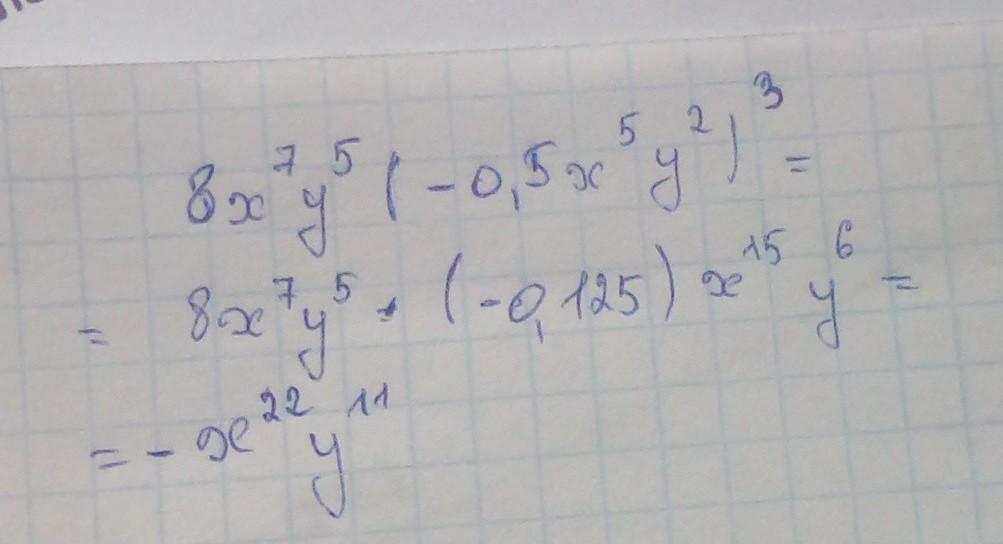 8x⁷y⁵(-0,5x⁵y²)³ =
= 8x⁷y⁵ · (-0,125)x¹⁵y⁶ =
= -x²²y¹¹